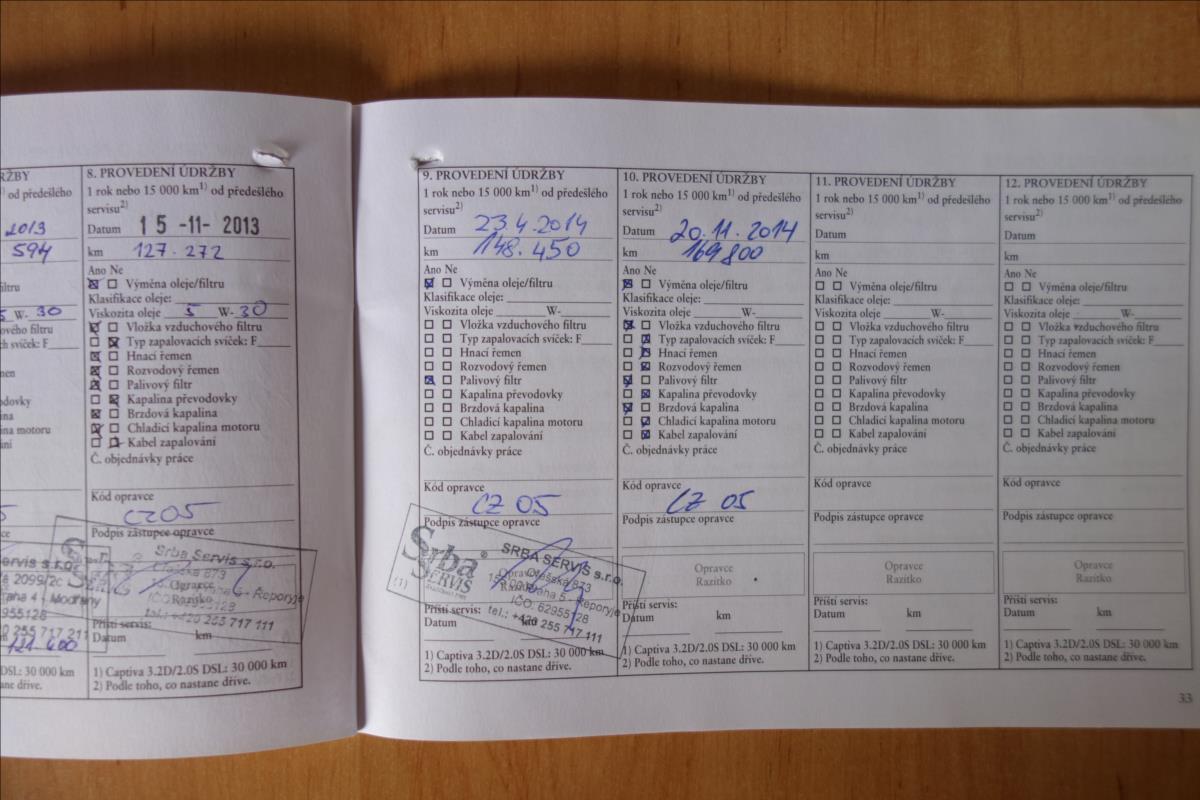 ŽBY
1) od předešlého
2013
594
filtru
5 W- 30
ového filtru
ch svíček: F
men
dovky
ina
ina motoru
ání
5
ce
ervis s.r.o.
2099/2c
aha 4 - Modřany
255 717 211
121.400
DSL: 30 000 km
tane dříve.
8. PROVEDENÍ ÚDRŽBY
1 rok nebo 15 000 km1) od předešlého
servisu2)
Datum 15 -11- 2013
km 127.272
Ano Ne
Výměna oleje/filtru
Klasifikace oleje:
Viskozita oleje 5 W- 30
Vložka vzduchového filtru
Typ zapalovacích svíček: F
Hnací řemen
Rozvodový řemen
Palivový filtr
Kapalina převodovky
Brzdová kapalina
Chladicí kapalina motoru
Kabel zapalování
Č. objednávky práce
Kód opravce
CZ05
Podpis zástupce opravce
Srba Servis s.r.o.
Opravce
Razítko
tel.: +420 255 717 111
Příští servis:
Datum km
1) Captiva 3.2D/2.0S DSL: 30 000 km
2) Podle toho, co nastane dříve.
9. PROVEDENÍ ÚDRŽBY
1 rok nebo 15 000 km1) od předešlého
servisu2)
Datum 23.4.2014
km 148.450
Ano Ne
Výměna oleje/filtru
Klasifikace oleje:
Viskozita oleje W-
Vložka vzduchového filtru
Typ zapalovacích svíček: F
Hnací řemen
Rozvodový řemen
Palivový filtr
Kapalina převodovky
Brzdová kapalina
Chladicí kapalina motoru
Kabel zapalování
Č. objednávky práce
Kód opravce
CZ 05
Podpis zástupce opravce
Srba SERVIS
®
SRBA SERVIS s.r.o.
Ořešská 873
Praha 5 - Řeporyje
IČO: 62955128
tel.: +420 255 717 111
(1)
Opravce
Razítko
Příští servis:
Datum km
1) Captiva 3.2D/2.0S DSL: 30 000 km
2) Podle toho, co nastane dříve.
10. PROVEDENÍ ÚDRŽBY
1 rok nebo 15 000 km1) od předešlého
servisu2)
Datum 20.11.2014
km 169800
Ano Ne
Výměna oleje/filtru
Klasifikace oleje:
Viskozita oleje W-
Vložka vzduchového filtru
Typ zapalovacích svíček: F
Hnací řemen
Rozvodový řemen
Palivový filtr
Kapalina převodovky
Brzdová kapalina
Chladicí kapalina motoru
Kabel zapalování
Č. objednávky práce
Kód opravce
CZ 05
Podpis zástupce opravce
Opravce
Razítko
Příští servis:
Datum km
1) Captiva 3.2D/2.0S DSL: 30 000 km
2) Podle toho, co nastane dříve.
11. PROVEDENÍ ÚDRŽBY
1 rok nebo 15 000 km1) od předešlého
servisu2)
Datum
km
Ano Ne
Výměna oleje/filtru
Klasifikace oleje:
Viskozita oleje W-
Vložka vzduchového filtru
Typ zapalovacích svíček: F
Hnací řemen
Rozvodový řemen
Palivový filtr
Kapalina převodovky
Brzdová kapalina
Chladicí kapalina motoru
Kabel zapalování
Č. objednávky práce
Kód opravce
Podpis zástupce opravce
Opravce
Razítko
Příští servis:
Datum km
1) Captiva 3.2D/2.0S DSL: 30 000 km
2) Podle toho, co nastane dříve.
12. PROVEDENÍ ÚDRŽBY
1 rok nebo 15 000 km1) od předešlého
servisu2)
Datum
km
Ano Ne
Výměna oleje/filtru
Klasifikace oleje:
Viskozita oleje W-
Vložka vzduchového filtru
Typ zapalovacích svíček: F
Hnací řemen
Rozvodový řemen
Palivový filtr
Kapalina převodovky
Brzdová kapalina
Chladicí kapalina motoru
Kabel zapalování
Č. objednávky práce
Kód opravce
Podpis zástupce opravce
Opravce
Razítko
Příští servis:
Datum km
1) Captiva 3.2D/2.0S DSL: 30 000 km
2) Podle toho, co nastane dříve.
33